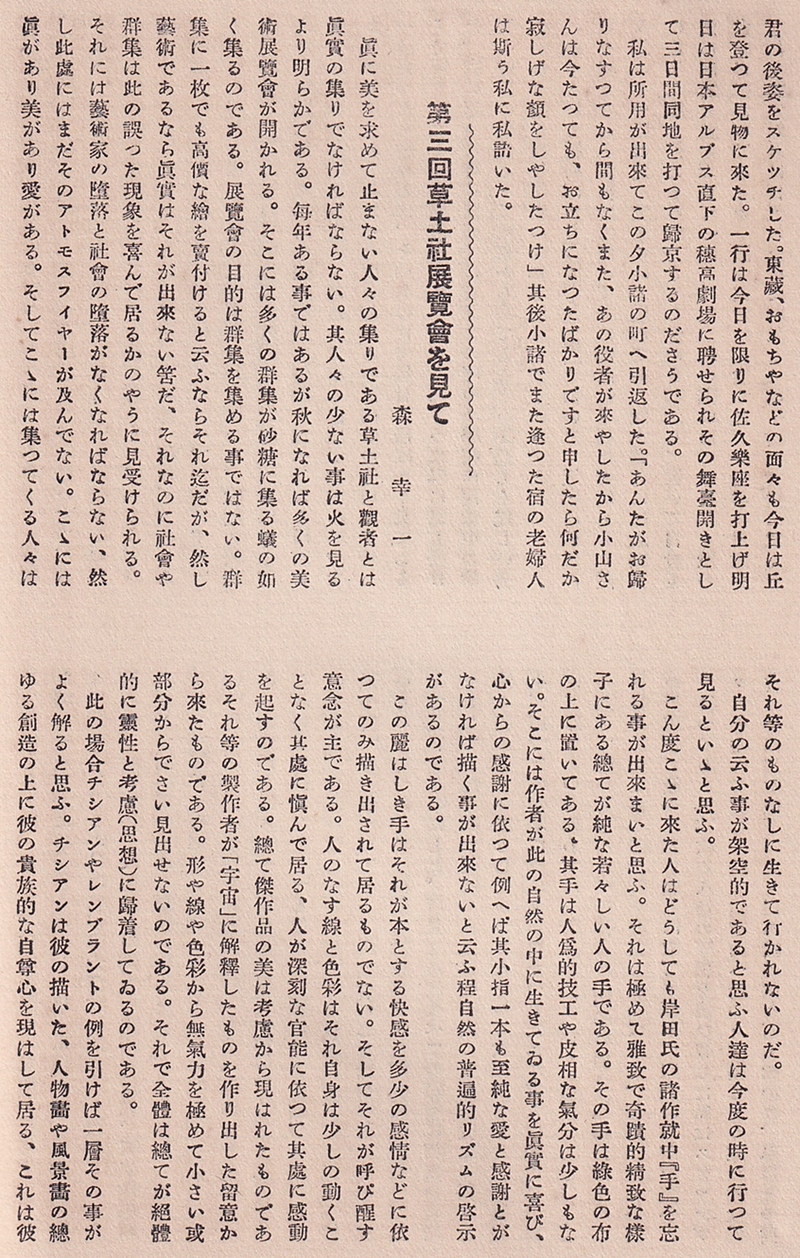 君の後姿をスケツチした。東藏、おもちやなどの面々も今日は丘
を登つて見物に來た。一行は今日を限りに佐久樂座を打上げ明
日は日本アルプス直下の穗高劇場に聘せられその舞臺開きとし
て三日間同地を打つて歸京するのださうである。
私は所用が出來てこの夕小諸の町へ引返した。「あんたがお歸
りなすつてから間もなくまた、あの役者が來やしたから小山さ
んは今たつても、お立ちになつたばかりですと申したら何だか
寂しげな顏をしやしたつけ」其後小諸でまた逢つた宿の老婦人
は斯う私に私語いた。
第三回草土社展覽會を見て
森幸一
眞に美を求めて止まない人々の集りである草土社と觀者とは
眞實の集りでなければならない。其人々の少ない事は火を見る
より明らかである。每年ある事ではあるが秋になれば多くの美
術展覽會が開かれる。そこには多くの群集が砂糖に集る蟻の如
く集るのである。展覽會の目的は群集を集める事ではない。群
集に一枚でも高價な繪を賣付けると云ふならそれ迄だが、然し
藝術であるなら眞實はそれが出來ない筈だ、それなのに社會や
群集は此の誤つた現象を喜んで居るかのやうに見受けられる。
それには藝術家の墮落と社會の墮落がなくなればならない、然
し此處にはまだそのアトモスフイヤーが及んでない。こゝには
眞があり美があり愛がある。そしてこゝには集つてくる人々は
それ等のものなしに生きて行かれないのだ。
自分の云ふ事が架空的であると思ふ人達は今度の時に行つて
見るといゝと思ふ。
こん度こゝに來た人はどうしても岸田氏の諸作就中『手』を忘
れる事が出來まいと思ふ。それは極めて雅致で奇蹟的精致な樣
子にある總てが純な若々しい人の手である。その手は綠色の布
の上に置いてある。其手は人爲的技工や皮相な氣分は少しもな
い。そこには作者が此の自然の中に生きてゐる事を眞實に喜び、
心からの感謝に依つて例へば其小指一本も至純な愛と感謝とが
なければ描く事が出來ないと云ふ程自然の普遍的リズムの啓示
があるのである。
この麗はしき手はそれが本とする快感を多少の感情などに依
つてのみ描き出されて居るものでない。そしてそれが呼び醒す
意念が主である。人のなす線と色彩はそれ自身は少しの動くこ
となく其處に愼んで居る、人が深刻な官能に依つて其處に感動
を起すのである。總て傑作品の美は考慮から現はれたものであ
るそれ等の製作者が「宇宙」に解釋したものを作り出した留意か
ら來たものである。形や線や色彩から無氣力を極めて小さい或
部分からでさい見出せないのである。それで全體は總てが絕體
的に靈性と考慮(思想)に歸着してゐるのである。
此の場合チシアンやレンブラントの例を引けば一層その事が
よく解ると思ふ。チシアンは彼の描いた、人物畵や風景畵の總
ゆる創造の上に彼の貴族的な自尊心を現はして居る、これは彼